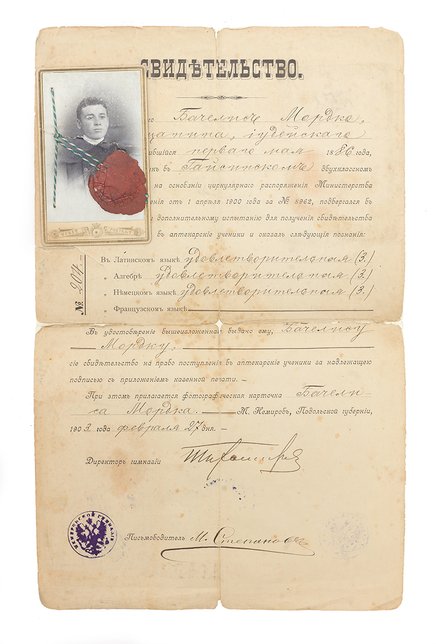 СВИДѢТЕЛЬСТВО.
Мордко
іудейскаго
перваго мая 1886 года,
въ Гайсинскомъ двухклассномъ
на основаніи циркулярнаго распоряженія Министерства
отъ 1 апрѣля 1900 года за № 8962, подвергался въ
дополнительному испытанію для полученія свидѣтельства
въ аптекарскіе ученики и оказалъ слѣдующія познанія:
Въ Латинскомъ языкѣ удовлетворительныя (3.)
Алгебрѣ удовлетворительныя (3.)
Нѣмецкомъ языкѣ удовлетворительныя (3.)
Французскомъ языкѣ
№ 207
Въ удостовѣреніе вышеизложеннаго выдано ему,
Мордку,
сіе свидѣтельство на право поступленія въ аптекарскіе ученики за надлежащею
подписью съ приложеніемъ казенной печати.
При этомъ прилагается фотографическая карточка
Мордка. М. Немировъ, Подольской губерніи,
1903 г. февраля 27 дня.
Директоръ гимназіи
Письмоводитель М. Степановъ